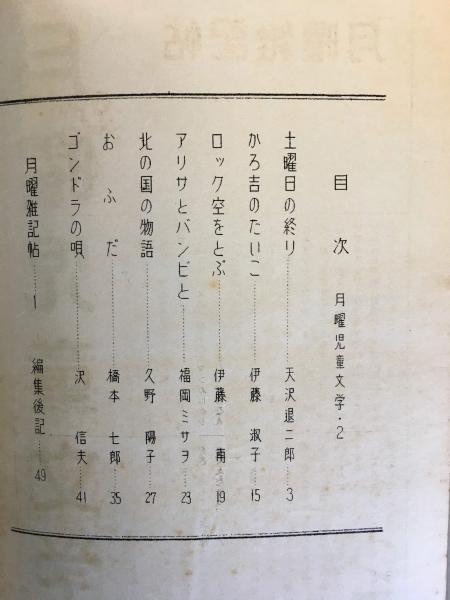 目次　月曜児童文学・2
土曜日の終り……天沢退二郎…3
かろ吉のたいこ……伊藤淑子…15
ロック空をとぶ……伊藤南…19
アリサとバンビと……福岡ミサヲ…23
北の国の物語……久野陽子…27
おふだ……橋本七郎…35
ゴンドラの唄……沢信夫…41
月曜雑記帖……1　編集後記……49